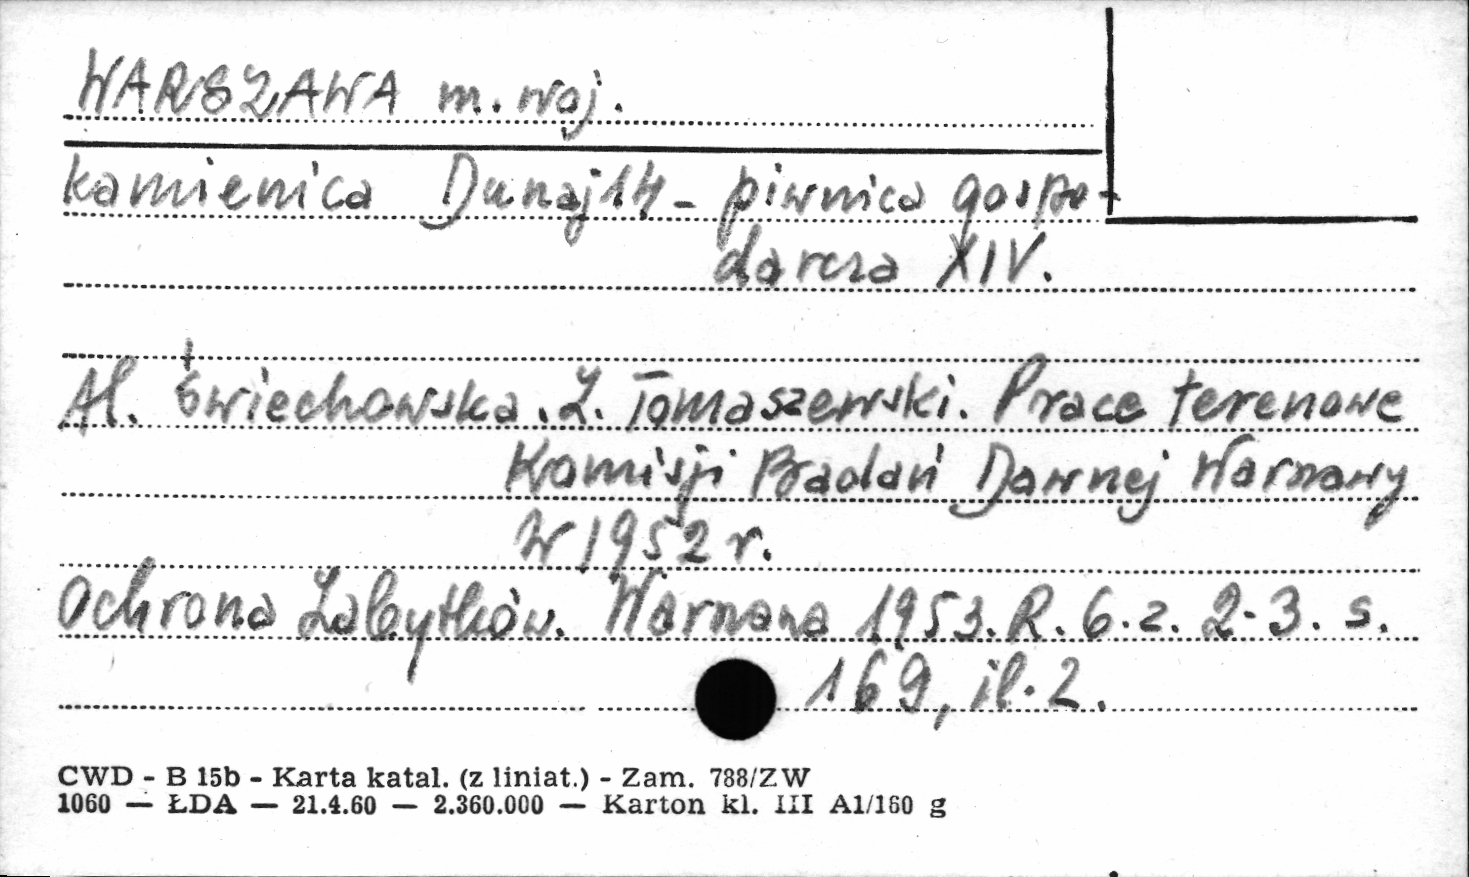 WARSZAWA m. woj.
kamienica Dunaj 14 - piwnica gospo-
darcza XIV.
Al. Świechowska. Z. Tomaszewski. Prace terenowe
Komisji Badań Dawnej Warszawy
w 1952 r.
Ochrona Zabytków. Warszawa 1953. R. 6. z. 2-3. s.
169, il. 2.
CWD - B 15b - Karta katal. (z liniat.) - Zam. 788/ZW
1060 — ŁDA — 21.4.60 — 2.360.000 — Karton kl. III A1/160 g